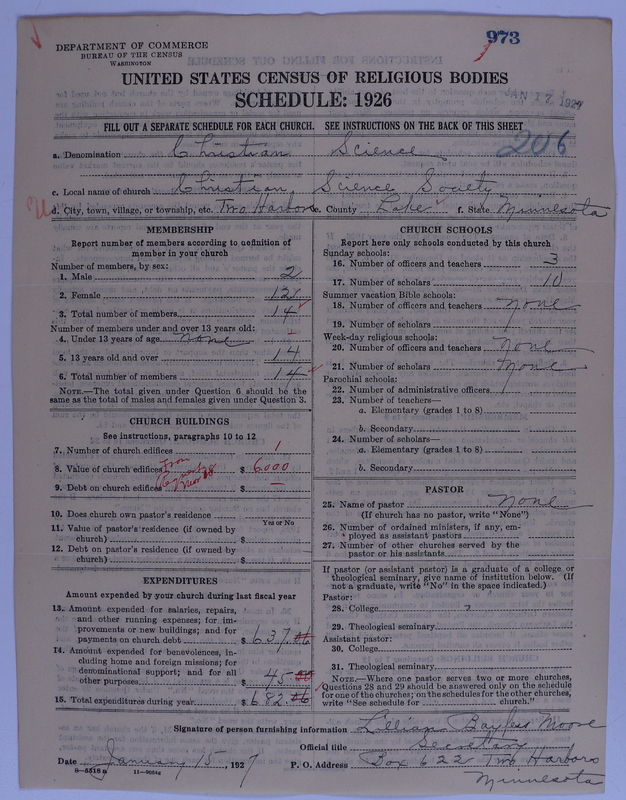 973
DEPARTMENT OF COMMERCE
BUREAU OF THE CENSUS
WASHINGTON
UNITED STATES CENSUS OF RELIGIOUS BODIES
SCHEDULE: 1926
JAN 17 1927
FILL OUT A SEPARATE SCHEDULE FOR EACH CHURCH. SEE INSTRUCTIONS ON THE BACK OF THIS SHEET
206
a. Denomination Christian Science
c. Local name of church Christian Science Society
d. City, town, village, or township, etc. Two Harbors e. County Lake f. State Minnesota
MEMBERSHIP
Report number of members according to definition of
member in your church
Number of members, by sex:
1. Male 2
2. Female 12
3. Total number of members 14
Number of members under and over 13 years old:
4. Under 13 years of age none
5. 13 years old and over 14
6. Total number of members 14
NOTE.—The total given under Question 6 should be
same as the total of males and females given under Question 3.
CHURCH BUILDINGS
See instructions, paragraphs 10 to 12
7. Number of church edifices 1
8. Value of church edifices $ 6000
From
9. Debt on church edifices $ —
10. Does church own pastor's residence
Yes or No
11. Value of pastor's residence (if owned by
church) $
12. Debt on pastor's residence (if owned by
church) $
EXPENDITURES
Amount expended by your church during last fiscal year
13. Amount expended for salaries, repairs,
and other running expenses; for improvements or new buildings; and for
payments on church debt $ 637.06
14. Amount expended for benevolences, including home and foreign missions; for
denominational support; and for all
other purposes $ 45.00
15. Total expenditures during year $ 682.06
CHURCH SCHOOLS
Report here only schools conducted by this church
Sunday schools:
16. Number of officers and teachers 3
17. Number of scholars 10
Summer vacation Bible schools:
18. Number of officers and teachers none
19. Number of scholars
Week-day religious schools:
20. Number of officers and teachers none
21. Number of scholars none
Parochial schools:
22. Number of administrative officers
23. Number of teachers—
a. Elementary (grades 1 to 8)
b. Secondary
24. Number of scholars—
a. Elementary (grades 1 to 8)
b. Secondary
PASTOR
25. Name of pastor none
(If church has no pastor, write "None")
26. Number of ordained ministers, if any, employed as assistant pastors
27. Number of other churches served by the
pastor or his assistants
If pastor (or assistant pastor) is a graduate of a college or
theological seminary, give name of institution below. (If
not a graduate, write "No" in the space indicated.)
Pastor:
28. College
29. Theological seminary
Assistant pastor:
30. College
31. Theological seminary
NOTE.—Where one pastor serves two or more churches,
Questions 28 and 29 should be answered only on the schedule
for one of the churches; on the schedules for the other churches,
write "See schedule for church."
Signature of person furnishing information Lillian Bayless Moore
Official title Secretary
Date January 15, 1927 P. O. Address Box 622 Two Harbors
Minnesota
8-5518a 11-9684a